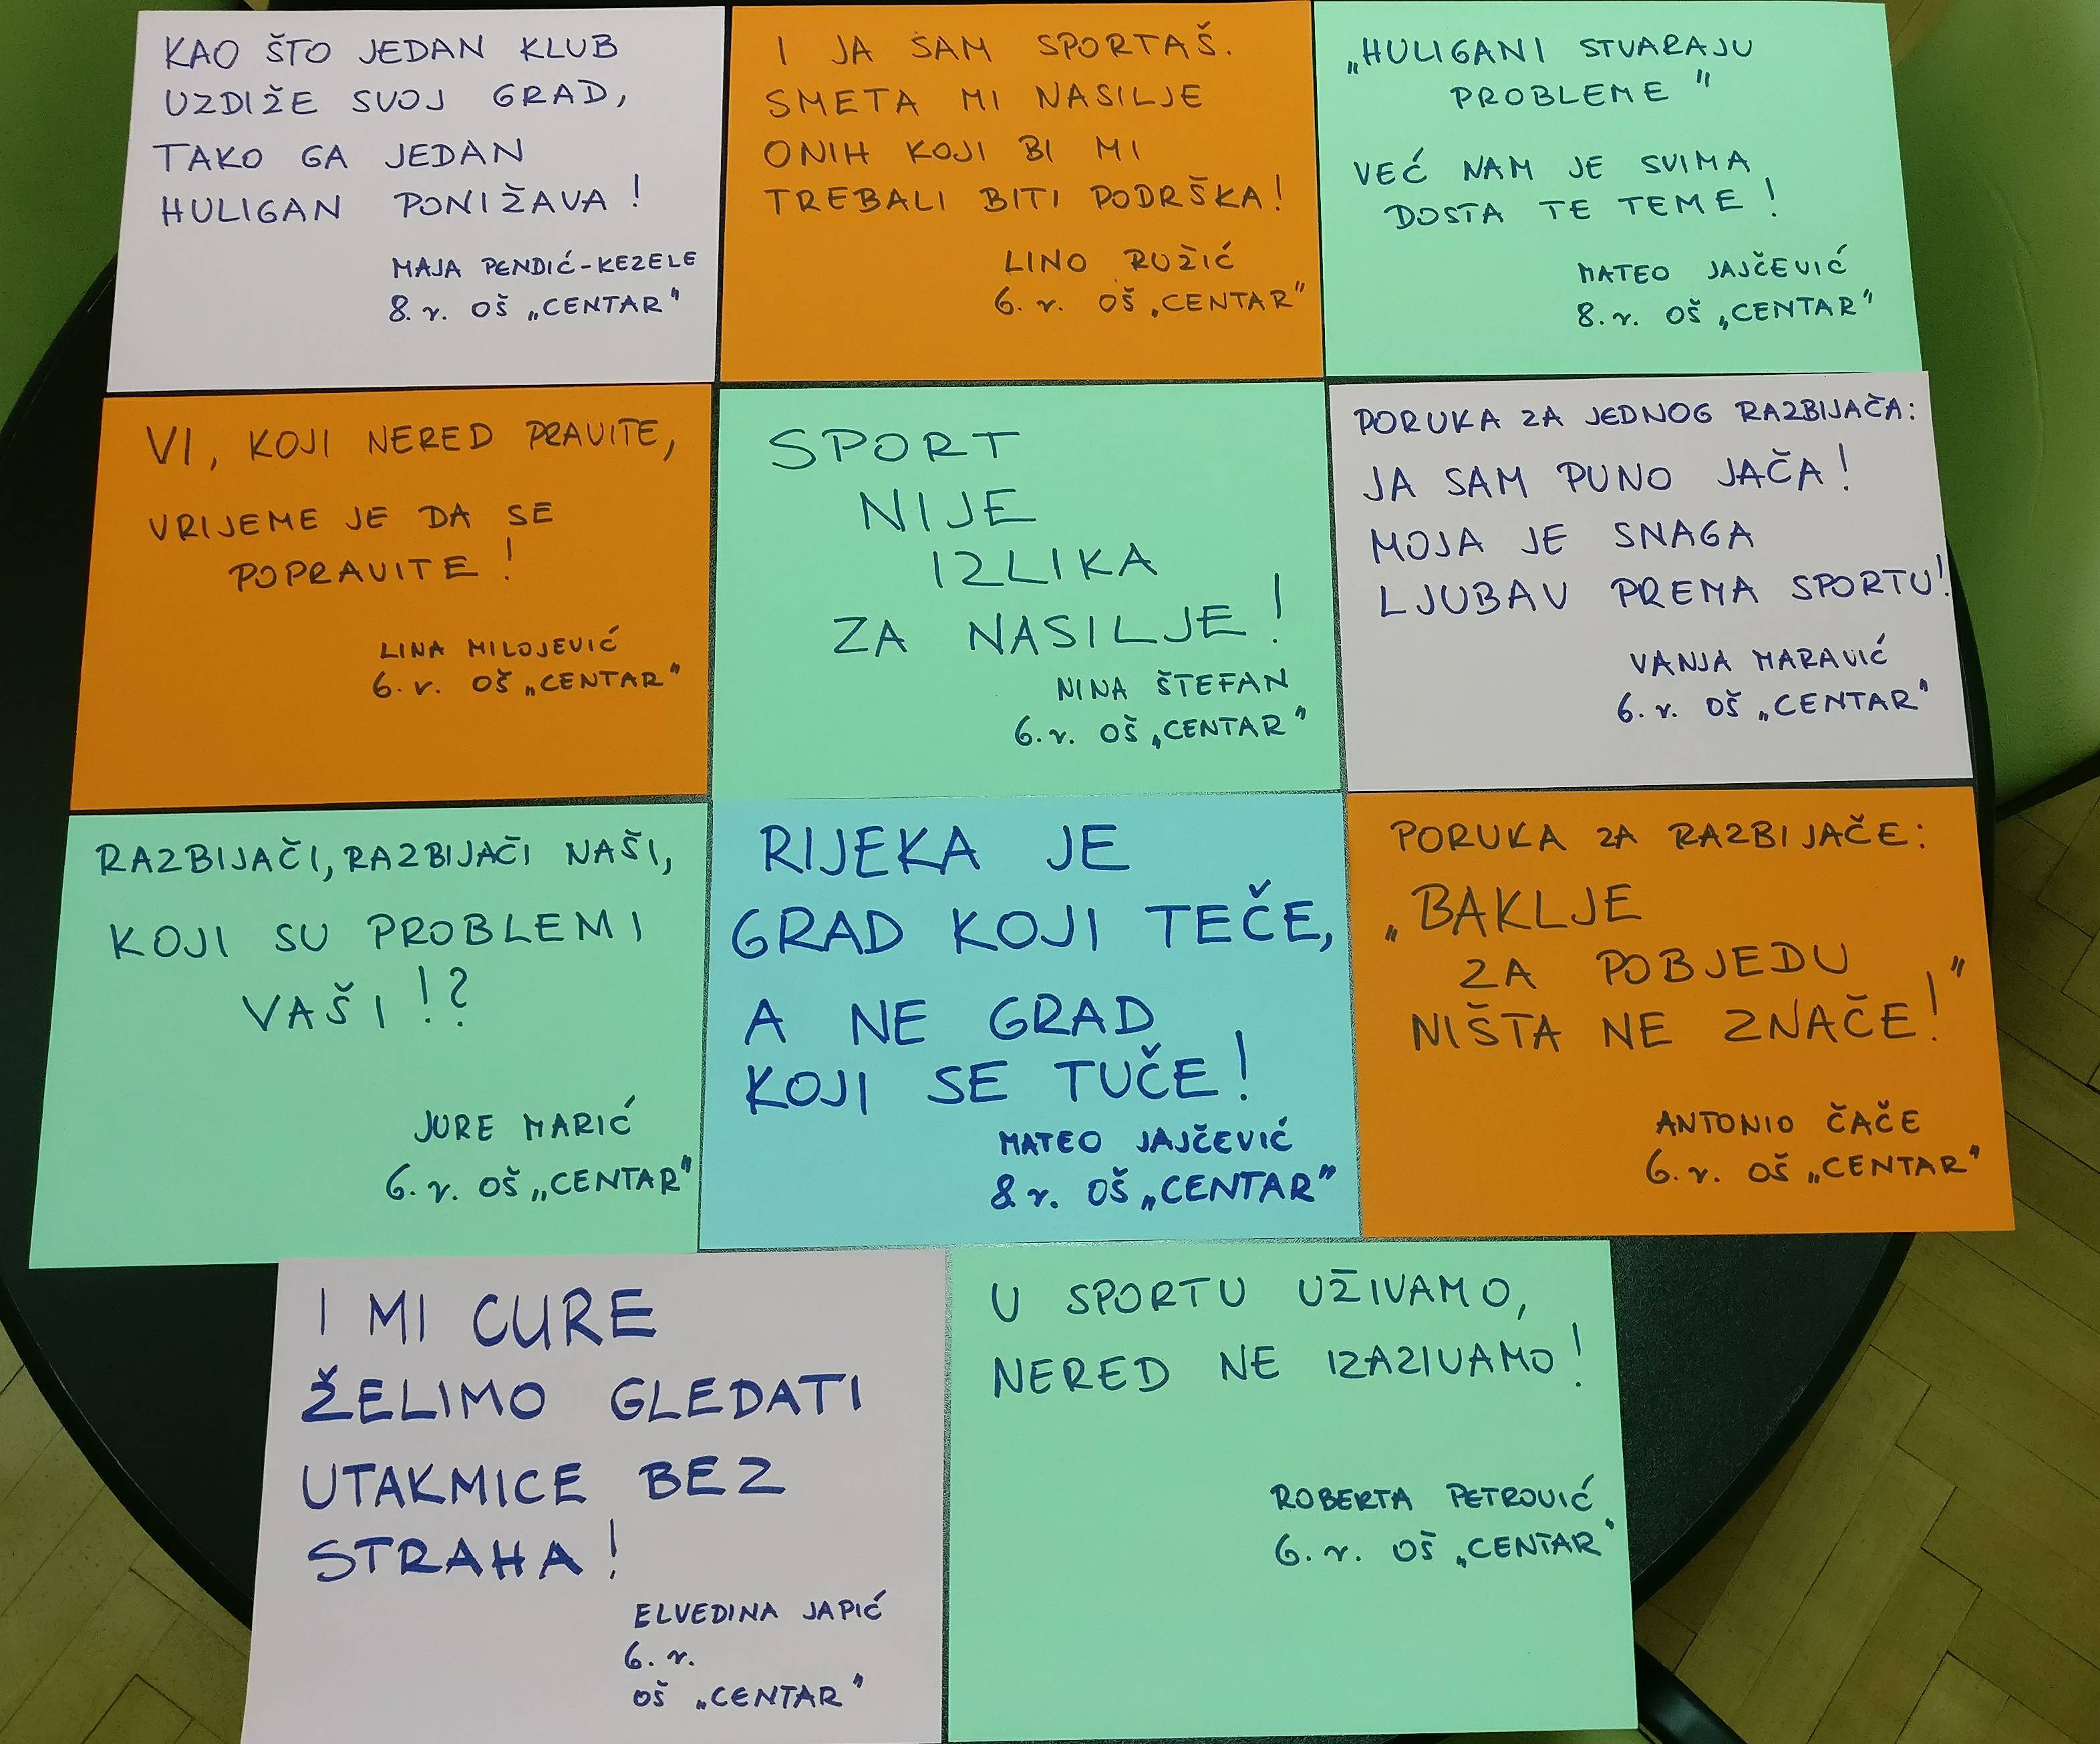 KAO ŠTO JEDAN KLUB
UZDIŽE SVOJ GRAD,
TAKO GA JEDAN
HULIGAN PONIŽAVA!
MAJA PENDIĆ-KEZELE
8. r. OŠ „CENTAR"
I JA SAM SPORTAŠ.
SMETA MI NASILJE
ONIH KOJI BI MI
TREBALI BITI PODRŠKA!
LINO RUŽIĆ
6. r. OŠ „CENTAR"
„HULIGANI STVARAJU
PROBLEME"
VEĆ NAM JE SVIMA
DOSTA TE TEME!
MATEO JAJČEVIĆ
8. r. OŠ „CENTAR"
VI, KOJI NERED PRAVITE,
VRIJEME JE DA SE
POPRAVITE!
LINA MILOJEVIĆ
6. r. OŠ „CENTAR"
SPORT
NIJE
IZLIKA
ZA NASILJE!
NINA ŠTEFAN
6. r. OŠ „CENTAR"
PORUKA ZA JEDNOG RAZBIJAČA:
JA SAM PUNO JAČA!
MOJA JE SNAGA
LJUBAV PREMA SPORTU!
VANJA MARAVIĆ
6. r. OŠ „CENTAR"
RAZBIJAČI, RAZBIJAČI NAŠI,
KOJI SU PROBLEMI
VAŠI!?
JURE MARIĆ
6. r. OŠ „CENTAR"
RIJEKA JE
GRAD KOJI TEČE,
A NE GRAD
KOJI SE TUČE!
MATEO JAJČEVIĆ
8 r. OŠ „CENTAR"
PORUKA ZA RAZBIJAČE:
„BAKLJE
ZA POBJEDU
NIŠTA NE ZNAČE!"
ANTONIO ČAČE
6. r. OŠ „CENTAR"
I MI CURE
ŽELIMO GLEDATI
UTAKMICE BEZ
STRAHA!
ELVEDINA JAPIĆ
6. r.
OŠ „CENTAR"
U SPORTU UŽIVAMO,
NERED NE IZAZIVAMO!
ROBERTA PETROVIĆ
6. r. OŠ „CENTAR"